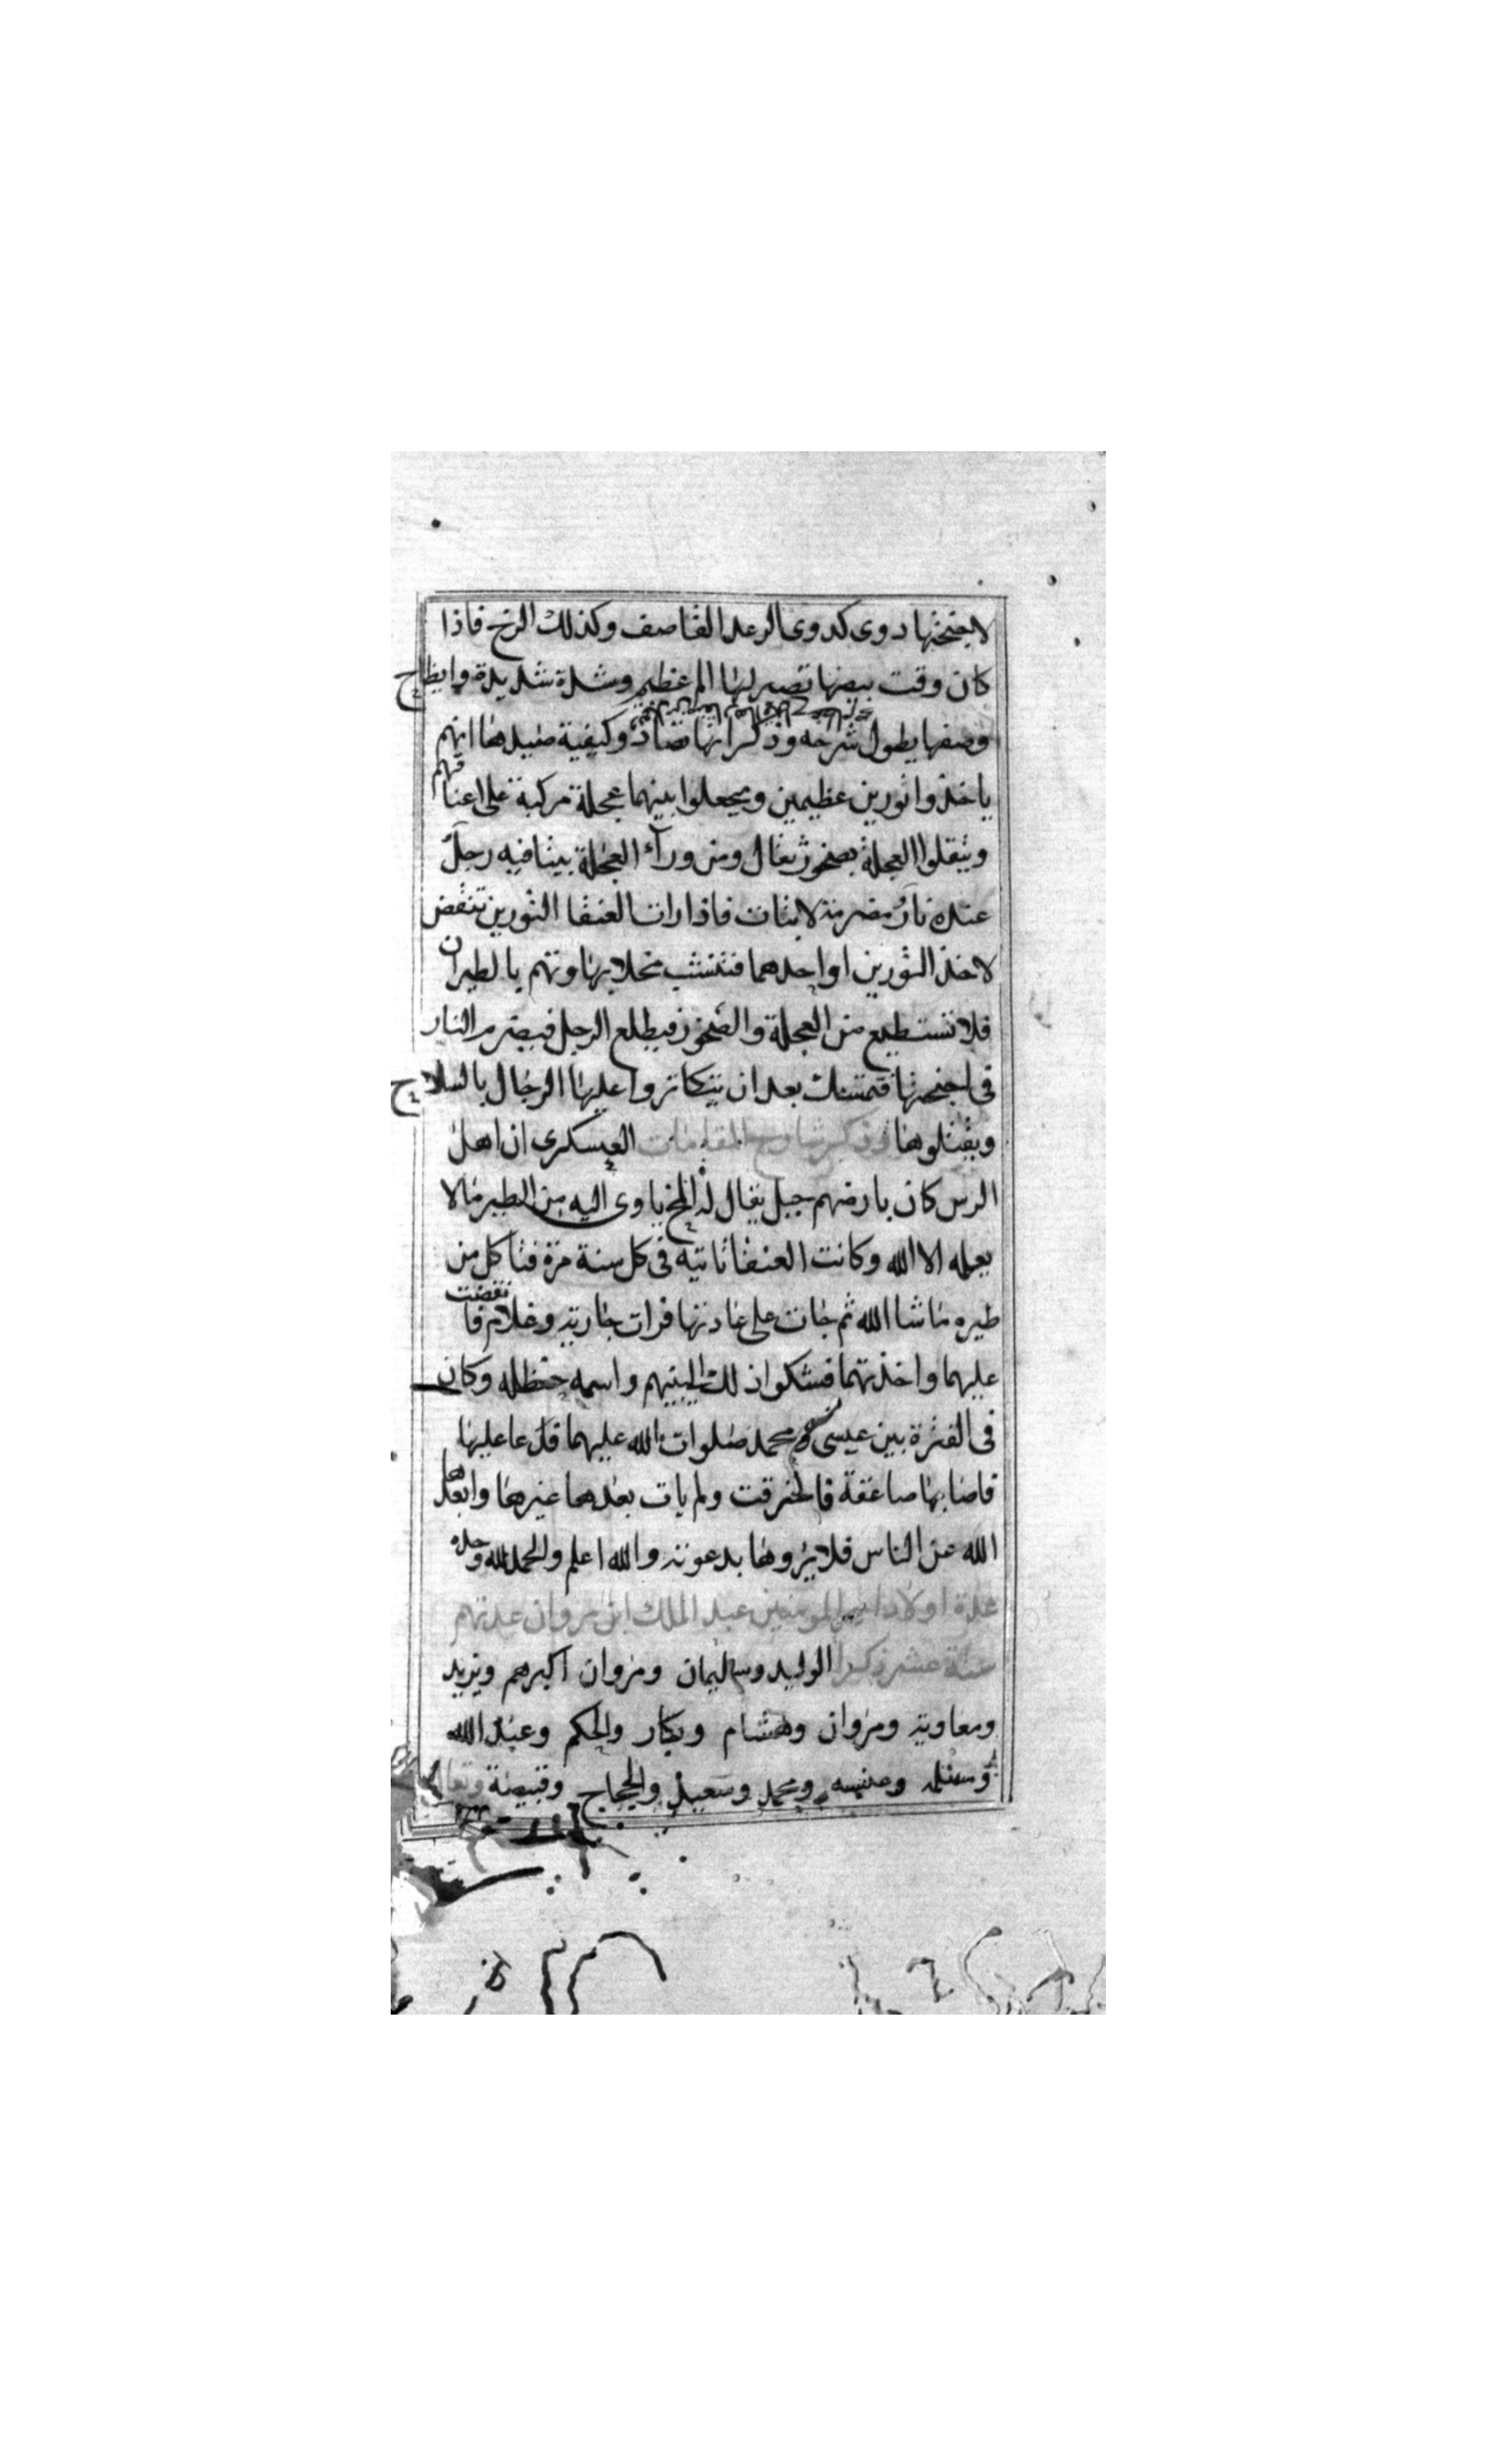 لاجنحتها دوى كدوى الرعد القاصف وكذلك الرخ فاذا
كان وقت بيضها تصير لها الم عظيم وشدة شديدة وايظاح
وصفها يطول شرحه وذكر انها تصاد وكيفية صيدها انهم
ياخذوا ثورين عظيمين ويجعلوا بينهما عجلة مركبة على اعناقهم
ويثقلوا العجلة بصخور ثقال ومن ورآء العجلة بيتا فيه رجل
عنده نار مضرمة فاذا رات العنقا الثورين تنقض
لاخذ الثورين او احدهما فتنشب مخلابها وتهم بالطيران
فلا تستطيع من العجلة والصخور فيطلع الرجل فيضرم النار
فى اجنحتها فتمسك بعد ان يتكاثروا عليها الرجال بالسلاح
ويقتلوها وذكر شارح المقامات العسكرى ان اهل
الرس كان بارضهم جبل يقال له المخ ياوى اليه من الطير مالا
يعلمه الا الله وكانت العنقا تاتيه فى كل سنة مرة فتاكل من
طيره ما شا الله ثم جات على عادتها فرات جارية وغلام فانقضت
عليهما واخذتهما فشكوا ذلك لنبيهم واسمه حنظله وكان
فى الفترة بين عيسى ومحمد صلوات الله عليهما فدعا عليها
فاصابها صاعقة فاحترقت ولم يات بعدها غيرها وابعدها
الله عن الناس فلا يروها بدعوته والله اعلم والحمد لله وحده
عدة اولاد امير المومنين عبد الملك ابن مروان عدتهم
ستة عشر ذكرا الوليد وسليمان ومروان اكبرهم ويزيد
ومعاوية ومروان وهشام وبكار والحكم وعبد الله
ومسلمه وعنبسه ومحمد وسعيد والحجاج وقبيصة